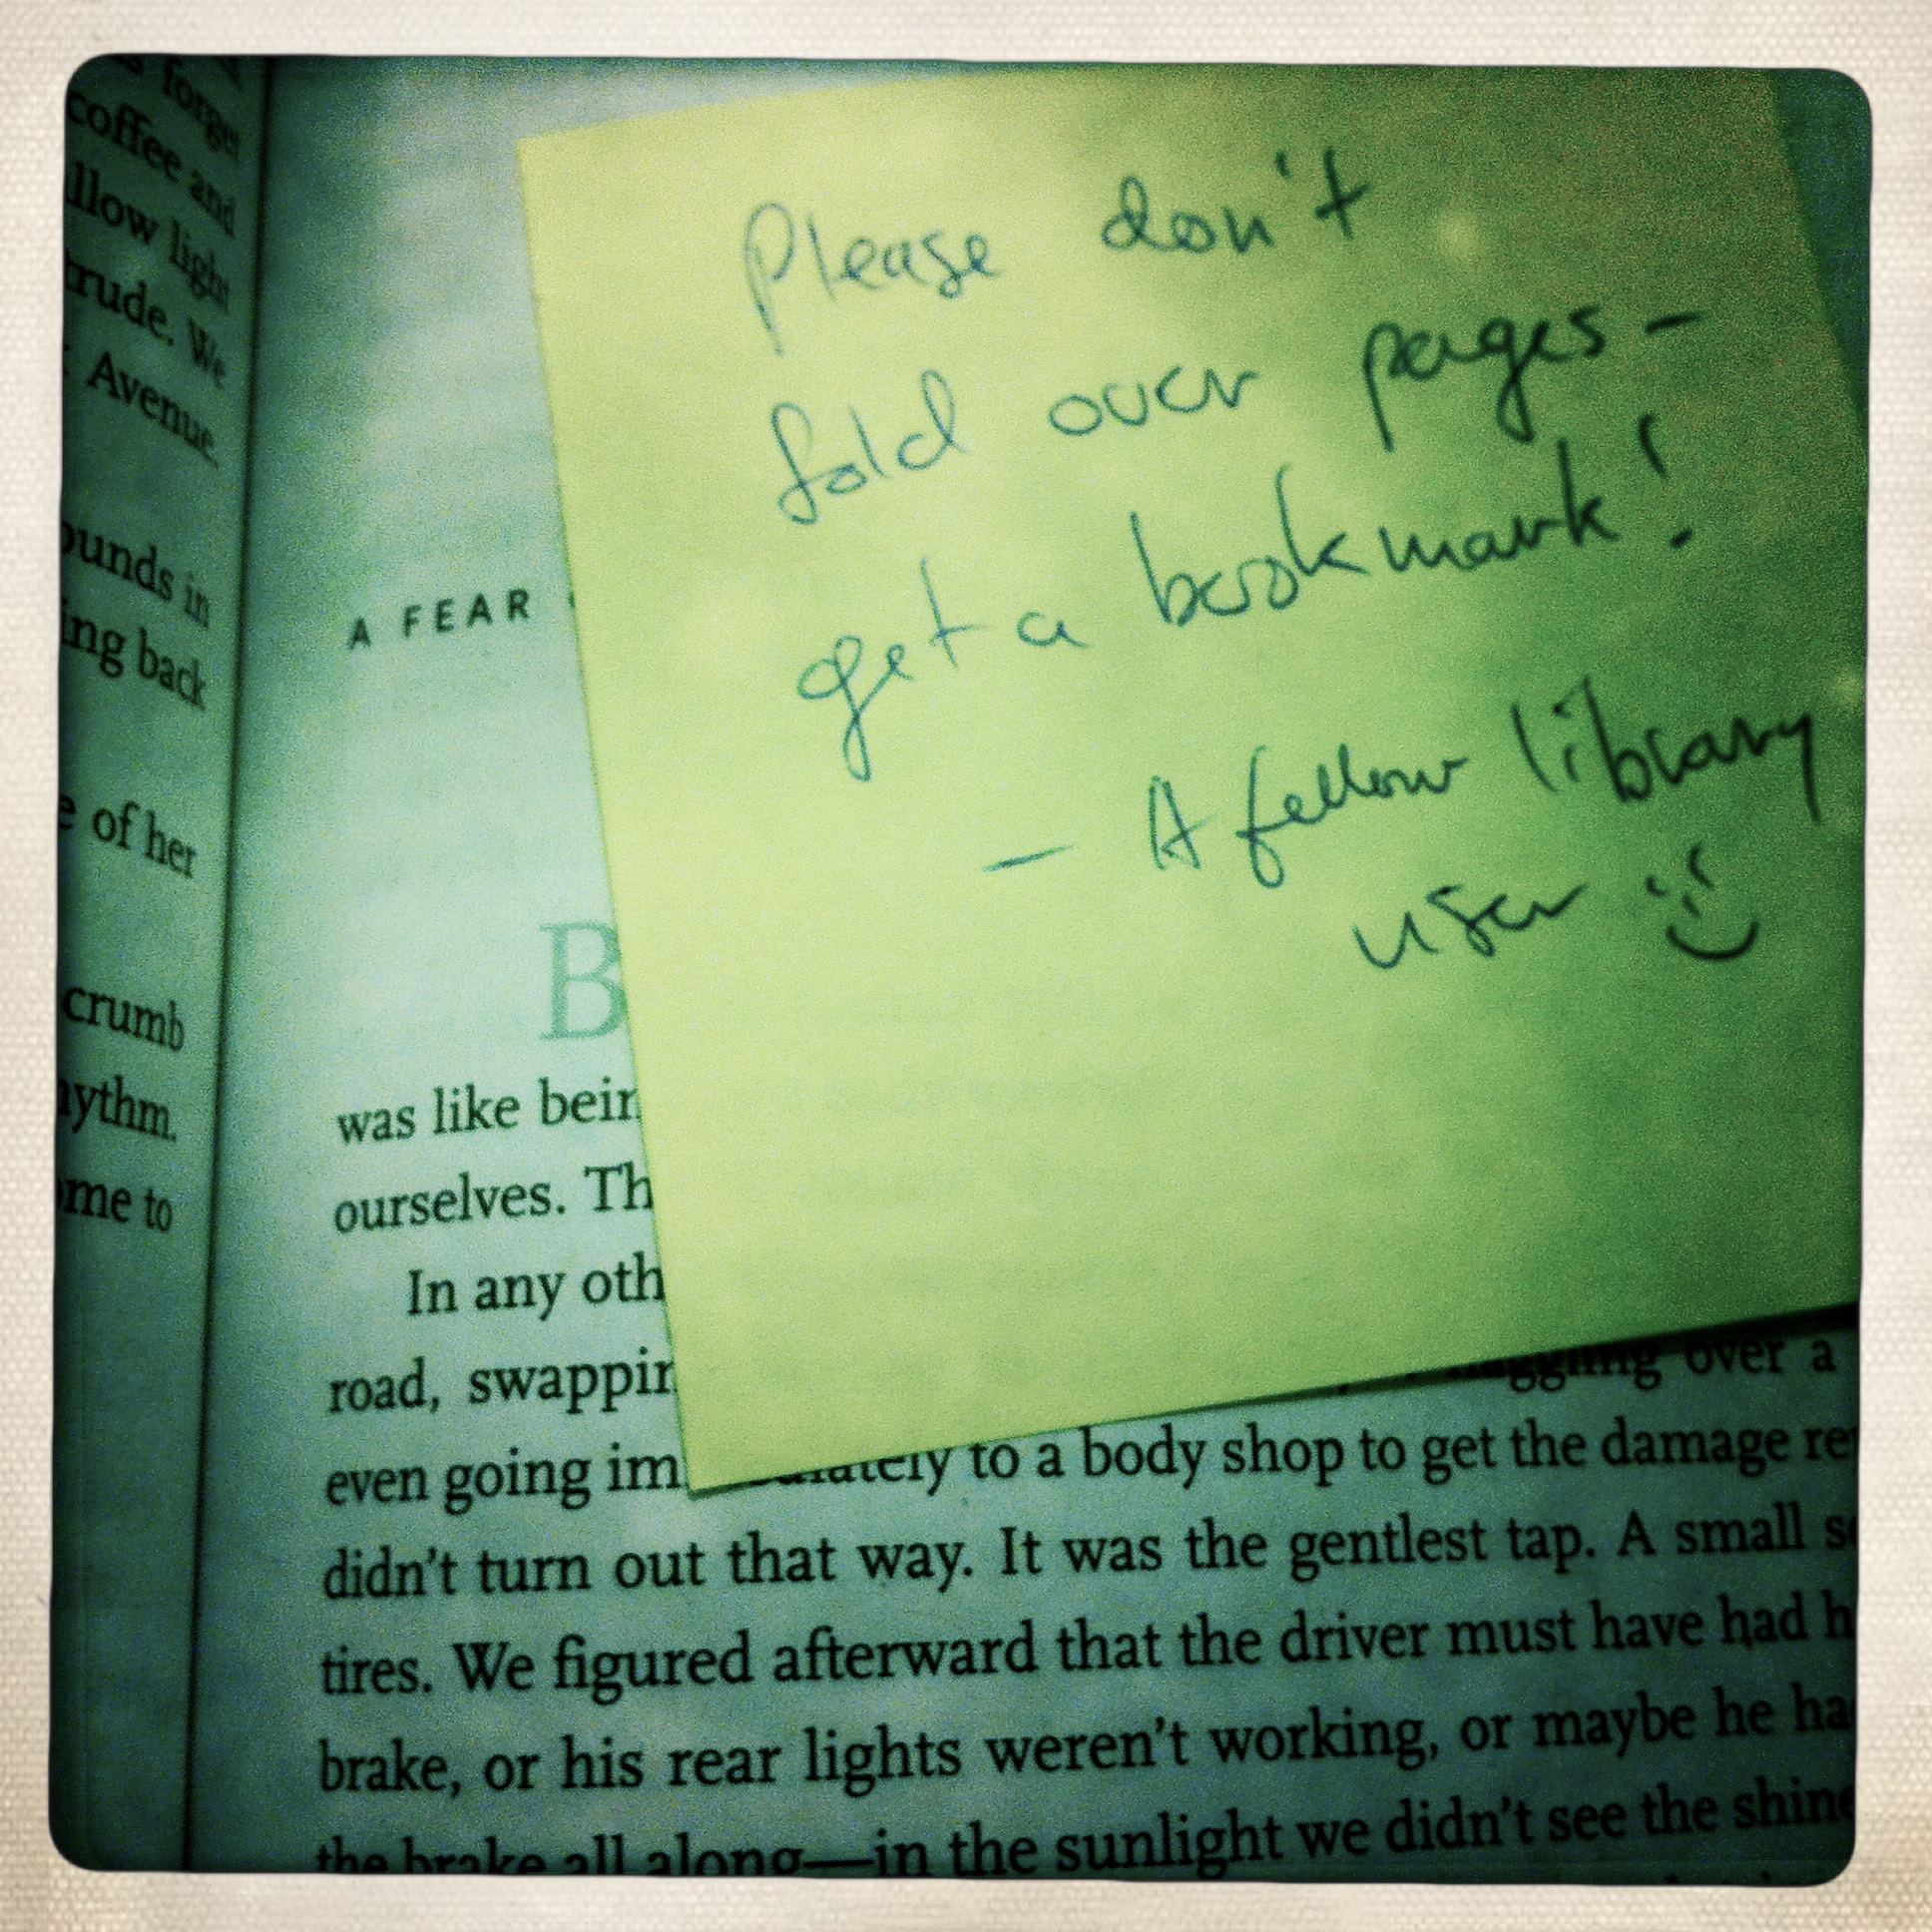 forget
coffee and
llow light
trude. We
Avenue.
ounds in
ing back
of her
crumb
hythm.
ome to
Please don't
fold over pages –
get a bookmark!
– A fellow library
user
A FEAR
B
was like bein
ourselves. Th
In any oth
road, swappin over a
even going im ately to a body shop to get the damage re
didn't turn out that way. It was the gentlest tap. A small s
tires. We figured afterward that the driver must have had h
brake, or his rear lights weren't working, or maybe he ha
the brake all along—in the sunlight we didn't see the shine